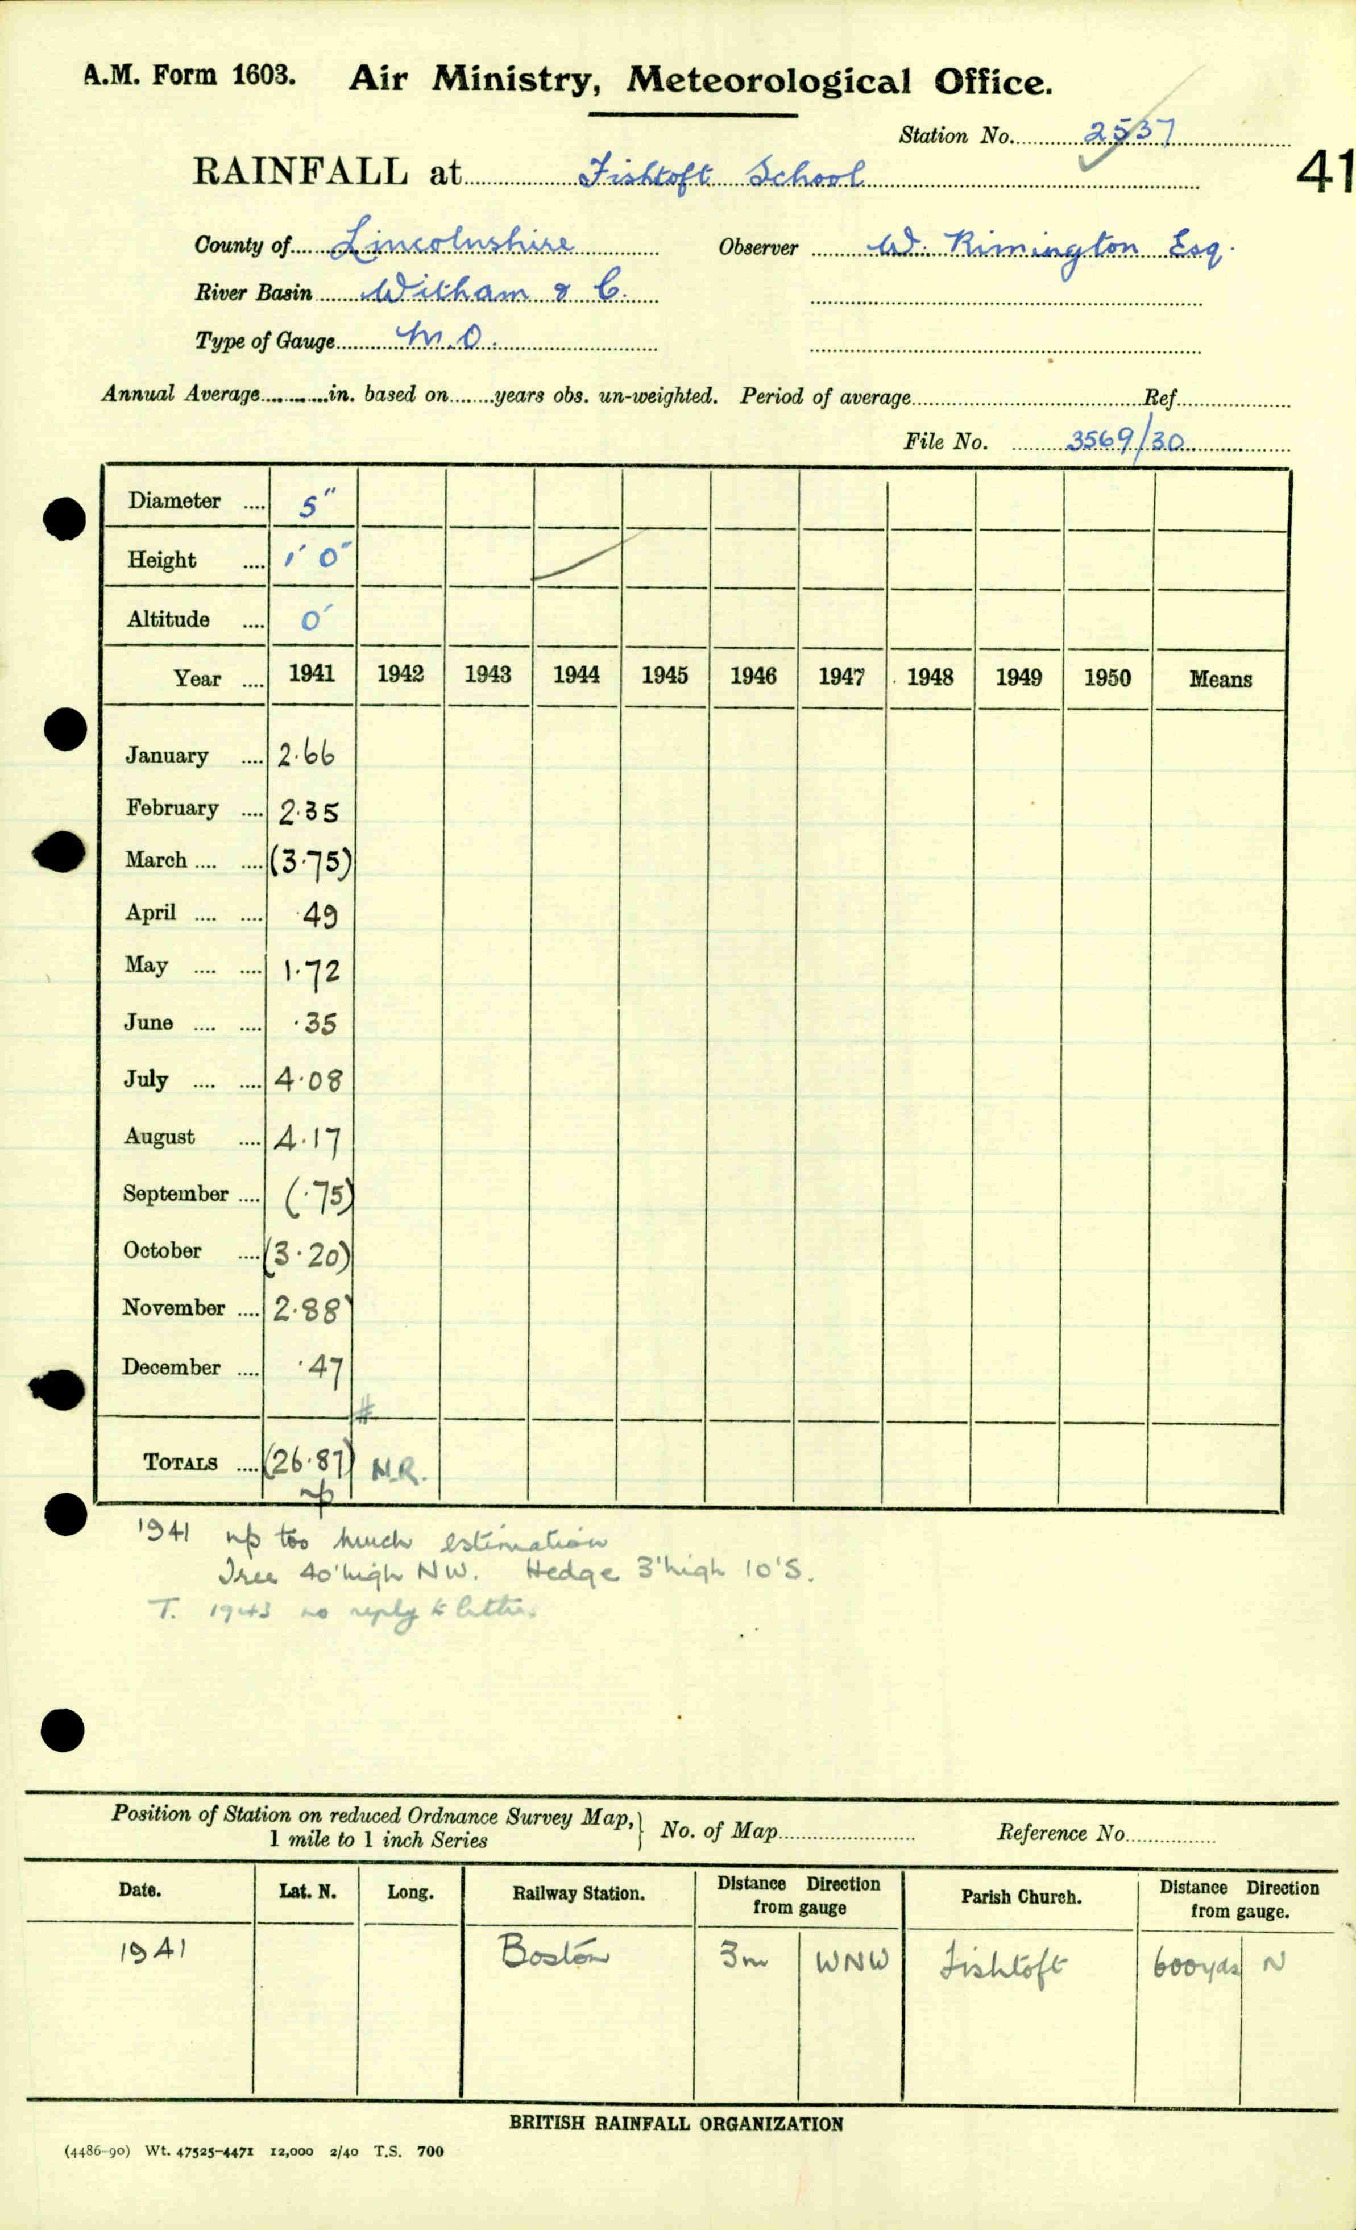 A.M. Form 1603. Air Ministry, Meteorological Office.
Station No. 2537
41
RAINFALL at Fishtoft School
County of Lincolnshire Observer W. Rimington Esq.
River Basin Witham & C.
Type of Gauge M.O.
Annual Average in. based on years obs. un-weighted. Period of average Ref
File No. 3569/30
Diameter .... 5"
Height .... 1' 0"
Altitude .... 0'
Year .... 1941 1942 1943 1944 1945 1946 1947 1948 1949 1950 Means
January .... 2.66
February .... 2.35
March .... .... (3.75)
April .... .... .49
May .... .... 1.72
June .... .... .35
July .... .... 4.08
August .... 4.17
September .... (.75)
October .... (3.20)
November .... 2.88
December .... .47
#
TOTALS .... (26.87) N.R.
np
1941 np too much estimation
Tree 40' high NW. Hedge 3' high 10' S.
T. 1943 no reply to letter.
Position of Station on reduced Ordnance Survey Map, } No. of Map Reference No.
1 mile to 1 inch Series
Date. Lat. N. Long. Railway Station. Distance Direction from gauge Parish Church. Distance Direction from gauge.
1941 Boston 3m WNW Fishtoft 600yds N
BRITISH RAINFALL ORGANIZATION
(4486-90) Wt. 47525-4471 12,000 2/40 T.S. 700